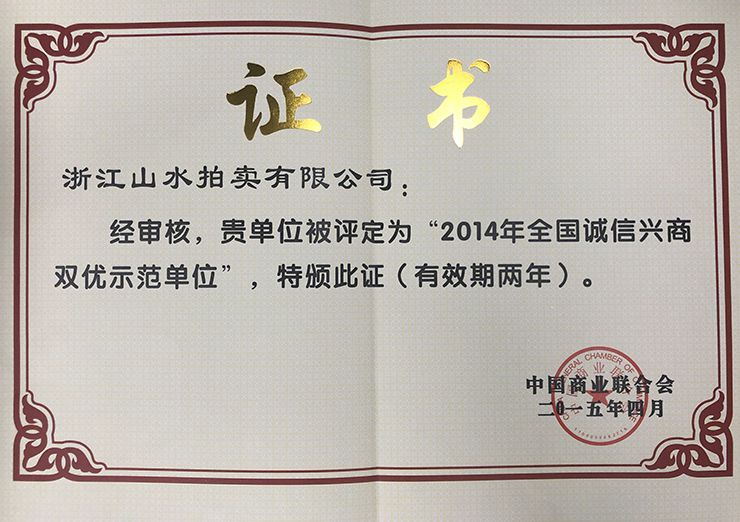 证 书
浙江山水拍卖有限公司：
经审核，贵单位被评定为“2014年全国诚信兴商
双优示范单位”，特颁此证（有效期两年）。
中国商业联合会
二〇一五年四月